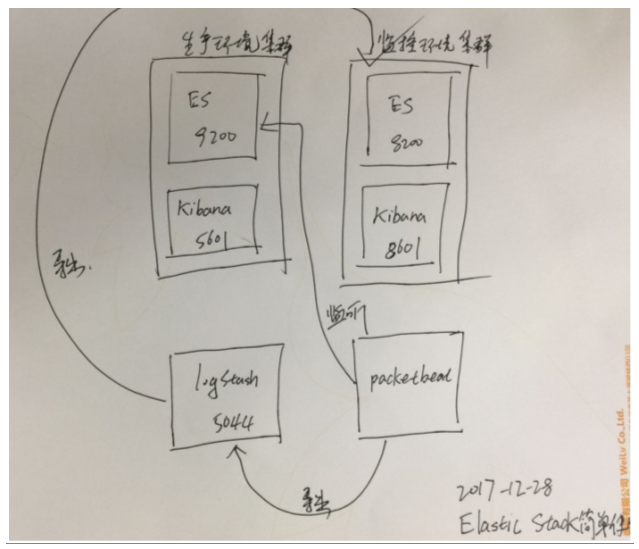 生产环境集群
监控环境集群
ES
9200
ES
8200
Kibana
5601
Kibana
8601
导出
监听
logstash
5044
packetbeat
导出
2017-12-28
Elastic Stack简单
有限公司 Weilv Co.,Ltd.